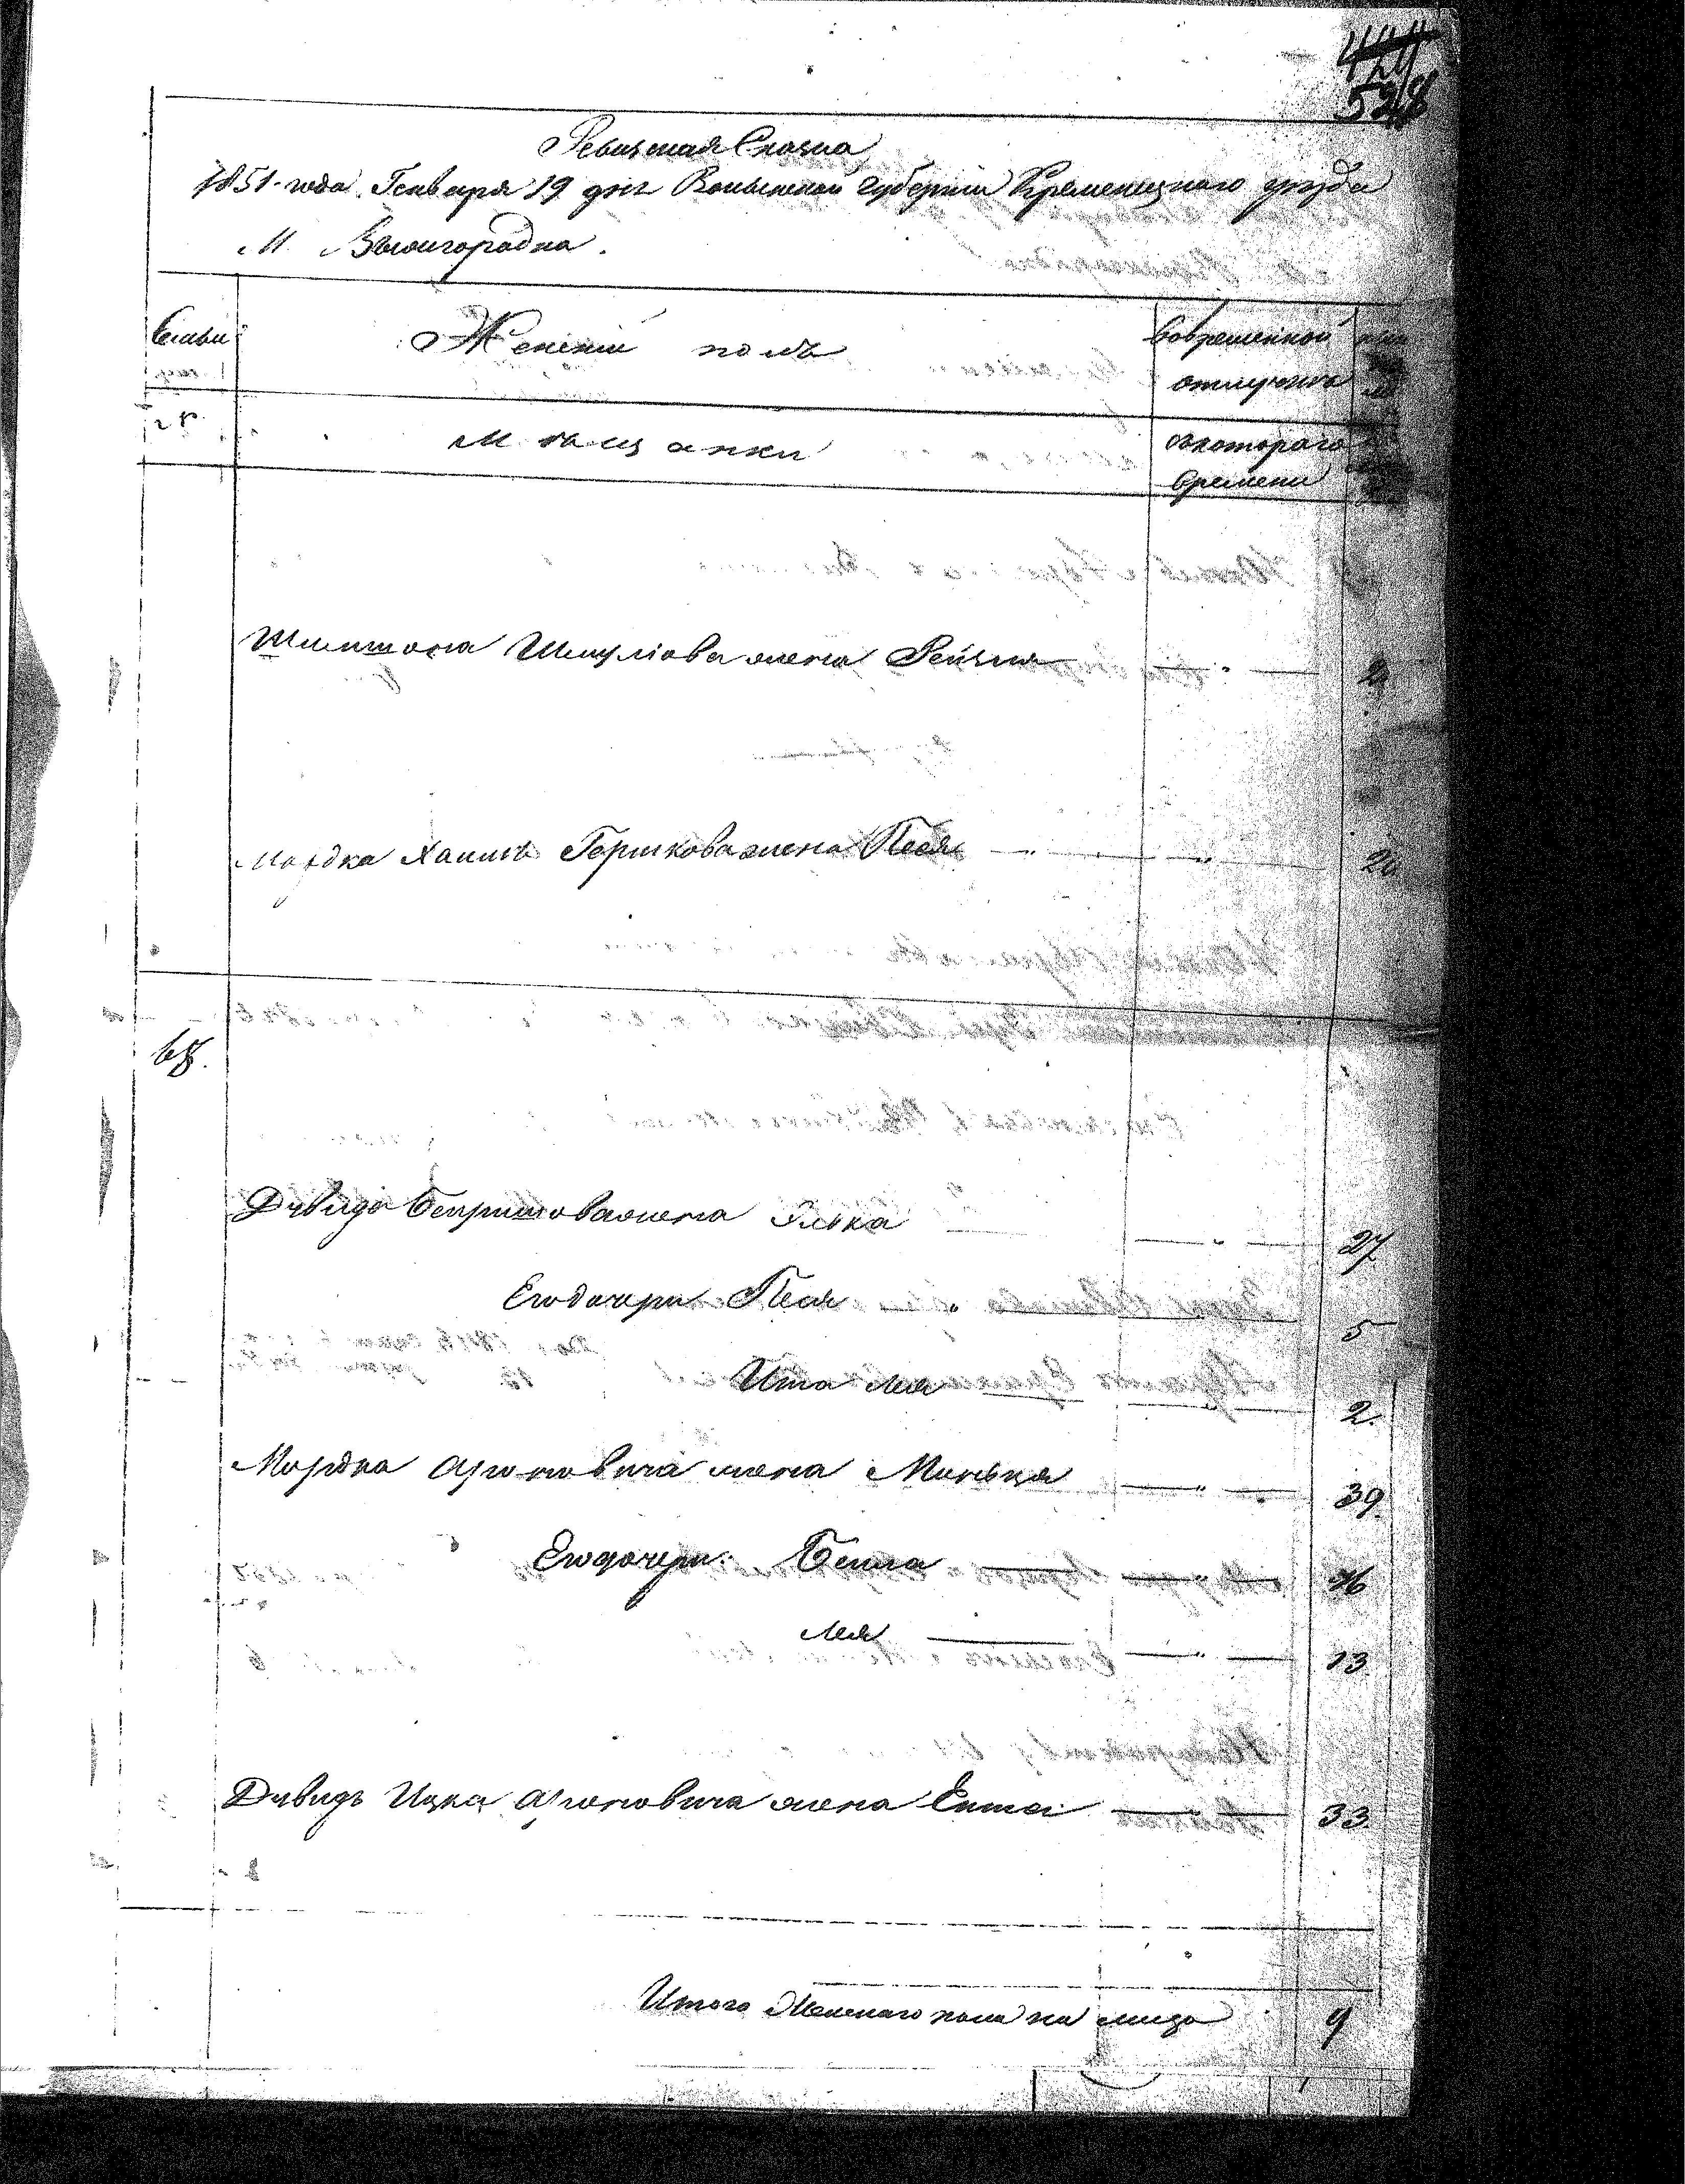 528
Ревизская Сказка
1851 года Генваря 19 дня Волынской Губернии Кременецкаго уезда
М. Вышгородка.
Семьи
Женский полъ
Вовременной
отлучке
Мещанки
съкотораго
времени
Шимшона Шмулiова жена Рейзя
Мордка Хаимъ Гершкова жена Песя 20
68.
Давида Беришова жена Ривка 27
Егодочери Песя 5
Ита Лея 2.
Мордка Ароновича жена Миньця 39.
Егодочери: Бейла 16
Лея 13
Давидъ Ицка Ароновича жена Ента 33.
Итого Женскаго пола на лицо 9